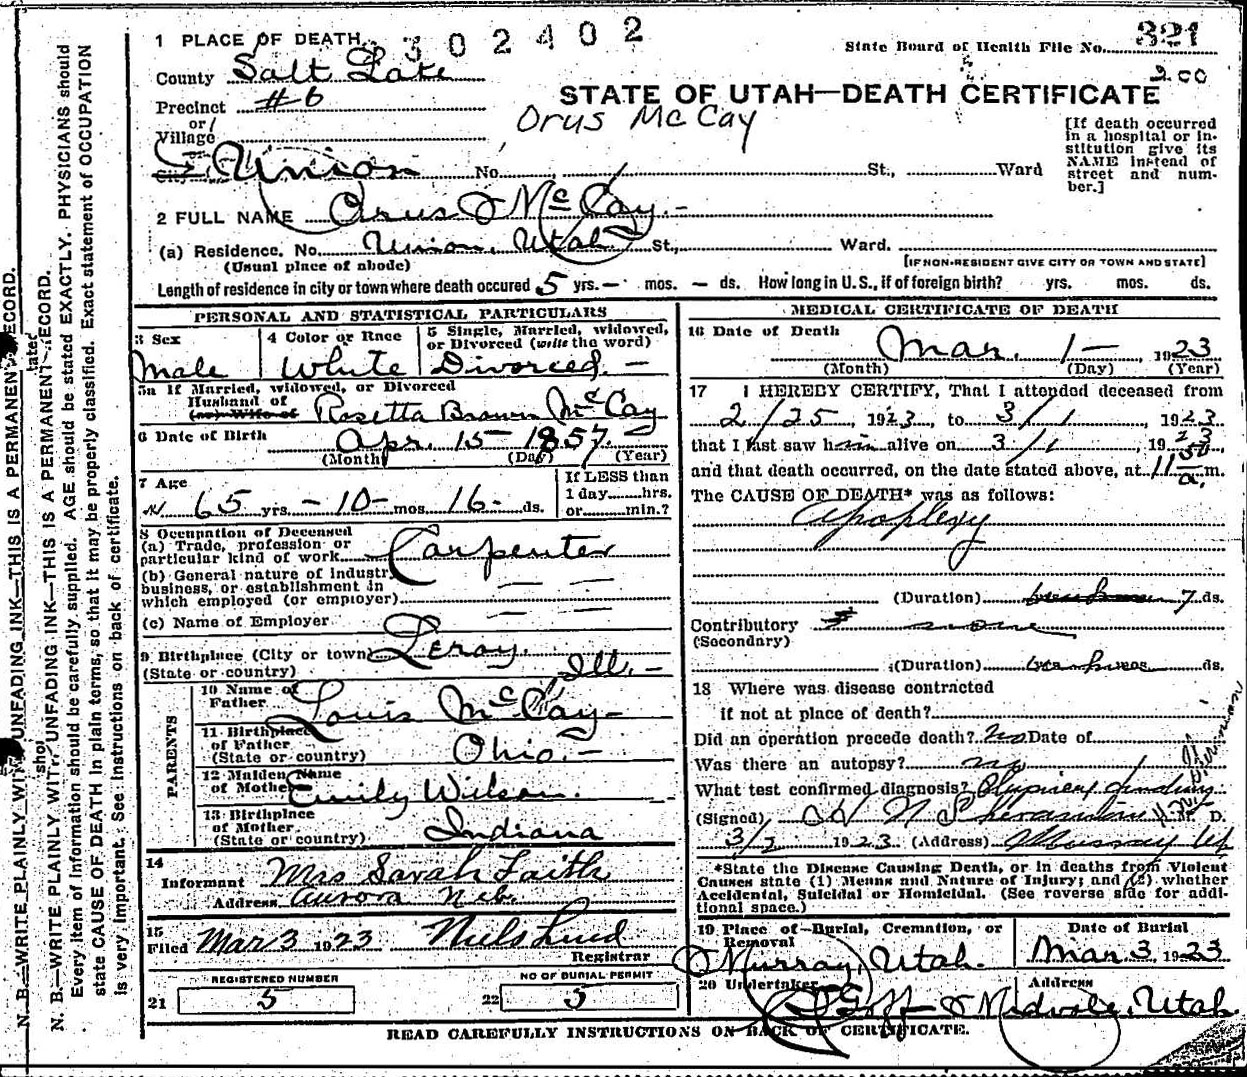 302402
1 PLACE OF DEATH
State Board of Health File No. 321
County Salt Lake
200
Precinct #6
STATE OF UTAH—DEATH CERTIFICATE
or
Village
Orus McCay
[If death occurred in a hospital or institution give its NAME instead of street and number.]
Union No. St., Ward
2 FULL NAME Orus McCay.-
(a) Residence. No. Union, Utah St., Ward.
(Usual place of abode) [IF NON-RESIDENT GIVE CITY OR TOWN AND STATE]
Length of residence in city or town where death occured 5 yrs. — mos. — ds. How long in U.S., if of foreign birth? yrs. mos. ds.
PERSONAL AND STATISTICAL PARTICULARS
3 Sex 4 Color or Race 5 Single, Married, widowed, or Divorced (write the word)
Male White Divorced. —
5a If Married, widowed, or Divorced
Husband of
(or) Wife of Rosetta Brown McCay
6 Date of Birth Apr. 15 - 1857. —
(Month) (Day) (Year)
7 Age
65 yrs. - 10 - mos. 16 - ds.
If LESS than
1 day......hrs.
or......min.?
8 Occupation of Deceased
(a) Trade, profession or
particular kind of work Carpenter
(b) General nature of industry,
business, or establishment in
which employed (or employer) — —
(c) Name of Employer — —
9 Birthplace (City or town) Leroy.
(State or country) Ill. —
PARENTS
10 Name of
Father Louis McCay —
11 Birthplace
of Father
(State or country) Ohio. —
12 Maiden Name
of Mother Emily Wilson.
13 Birthplace
of Mother
(State or country) Indiana
14
Informant Mrs Sarah Faith
Address Aurora Neb.
15
Filed Mar 3 1923 Niels Lind
Registrar
REGISTERED NUMBER NO OF BURIAL PERMIT
21 5 22 5
MEDICAL CERTIFICATE OF DEATH
16 Date of Death Mar. 1 —, 1923
(Month) (Day) (Year)
17 I HEREBY CERTIFY, That I attended deceased from
2/25 1923, to 3/1, 1923
that I last saw him alive on 3/1 1923
and that death occurred, on the date stated above, at 11 50 a. m.
The CAUSE OF DEATH* was as follows:
Apoplexy
(Duration) 7 ds.
Contributory none
(Secondary)
(Duration) ds.
18 Where was disease contracted
if not at place of death?
Did an operation precede death? No Date of
Was there an autopsy? no
What test confirmed diagnosis? Physical findings
(Signed) M. D.
3/2 1923 (Address) Murray Ut
*State the Disease Causing Death, or in deaths from Violent
Causes state (1) Means and Nature of Injury; and (2) whether
Accidental, Suicidal or Homicidal. (See reverse side for addi-
tional space.)
19 Place of Burial, Cremation, or
Removal Date of Burial
Murray, Utah. Mar. 3, 1923
20 Undertaker Address
Goff & Midvale, Utah
READ CAREFULLY INSTRUCTIONS ON BACK OF CERTIFICATE.
N. B.—WRITE PLAINLY WITH UNFADING INK—THIS IS A PERMANENT RECORD.
N. B.—WRITE PLAINLY WITH UNFADING INK—THIS IS A PERMANENT RECORD.
Every item of information should be carefully supplied. AGE should be stated EXACTLY. PHYSICIANS should
state CAUSE OF DEATH in plain terms, so that it may be properly classified. Exact statement of OCCUPATION
is very important. See instructions on back of certificate.